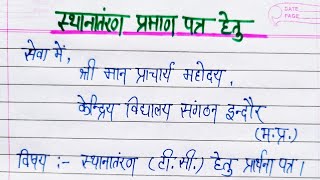 स्थानातंरण प्रमाण पत्र हेतु
DATE
PAGE
सेवा में,
श्री मान प्राचार्य महोदय,
केन्द्रिय विद्यालय संगठन इन्दौर
(म.प्र.)
विषय :- स्थानातंरण (टी.सी.) हेतु प्रार्थना पत्र।